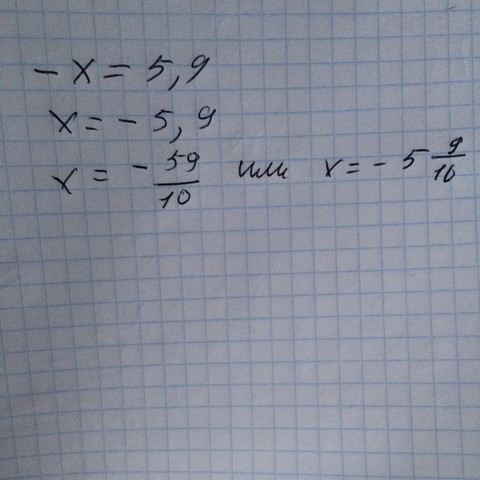 - x = 5,9
x = - 5,9
x = - 59/10 или x = - 5 9/10